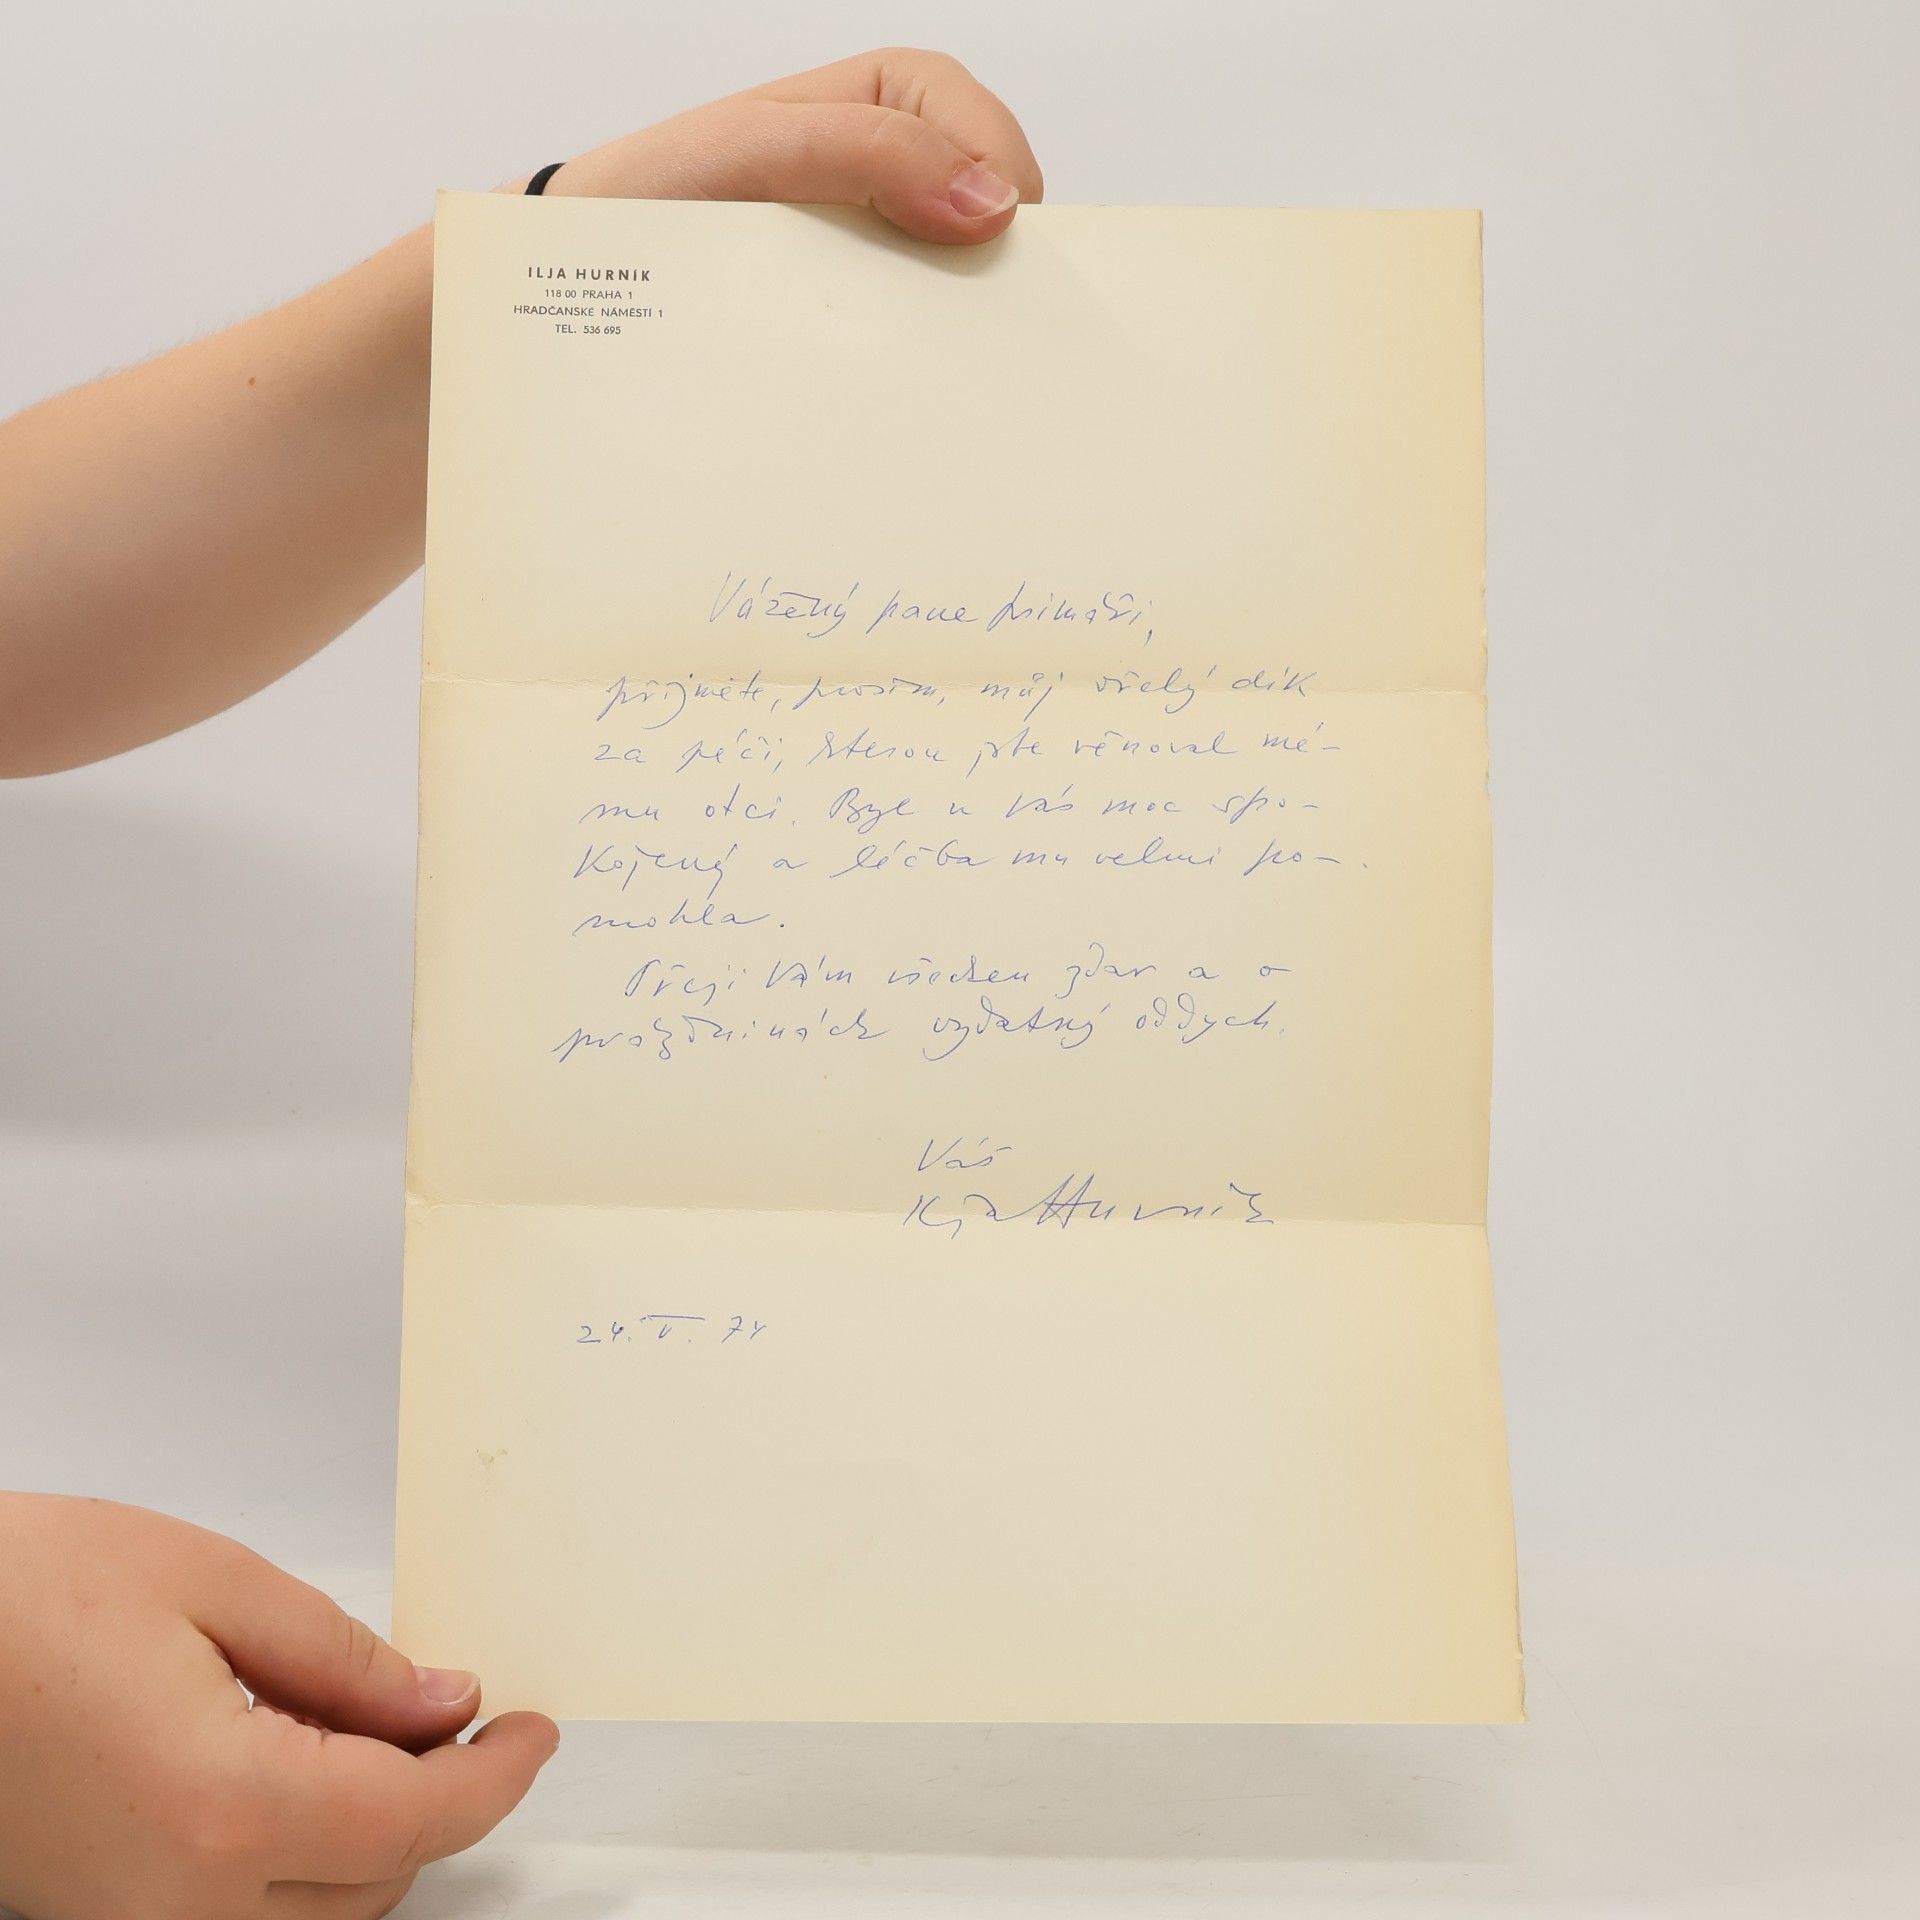 ILJA HURNÍK
118 00 PRAHA 1
HRADČANSKÉ NÁMĚSTÍ 1
TEL. 536 695
Vážený pane primáři,
přijměte, prosím, můj vřelý dík
za péči, kterou jste věnoval mé-
mu otci. Byl u Vás moc spo-
kojený a léčba mu velmi po-
mohla.
Přeji Vám všechen zdar a o
prázdninách vydatný oddych.
Váš
Ilja Hurník
24. V. 74